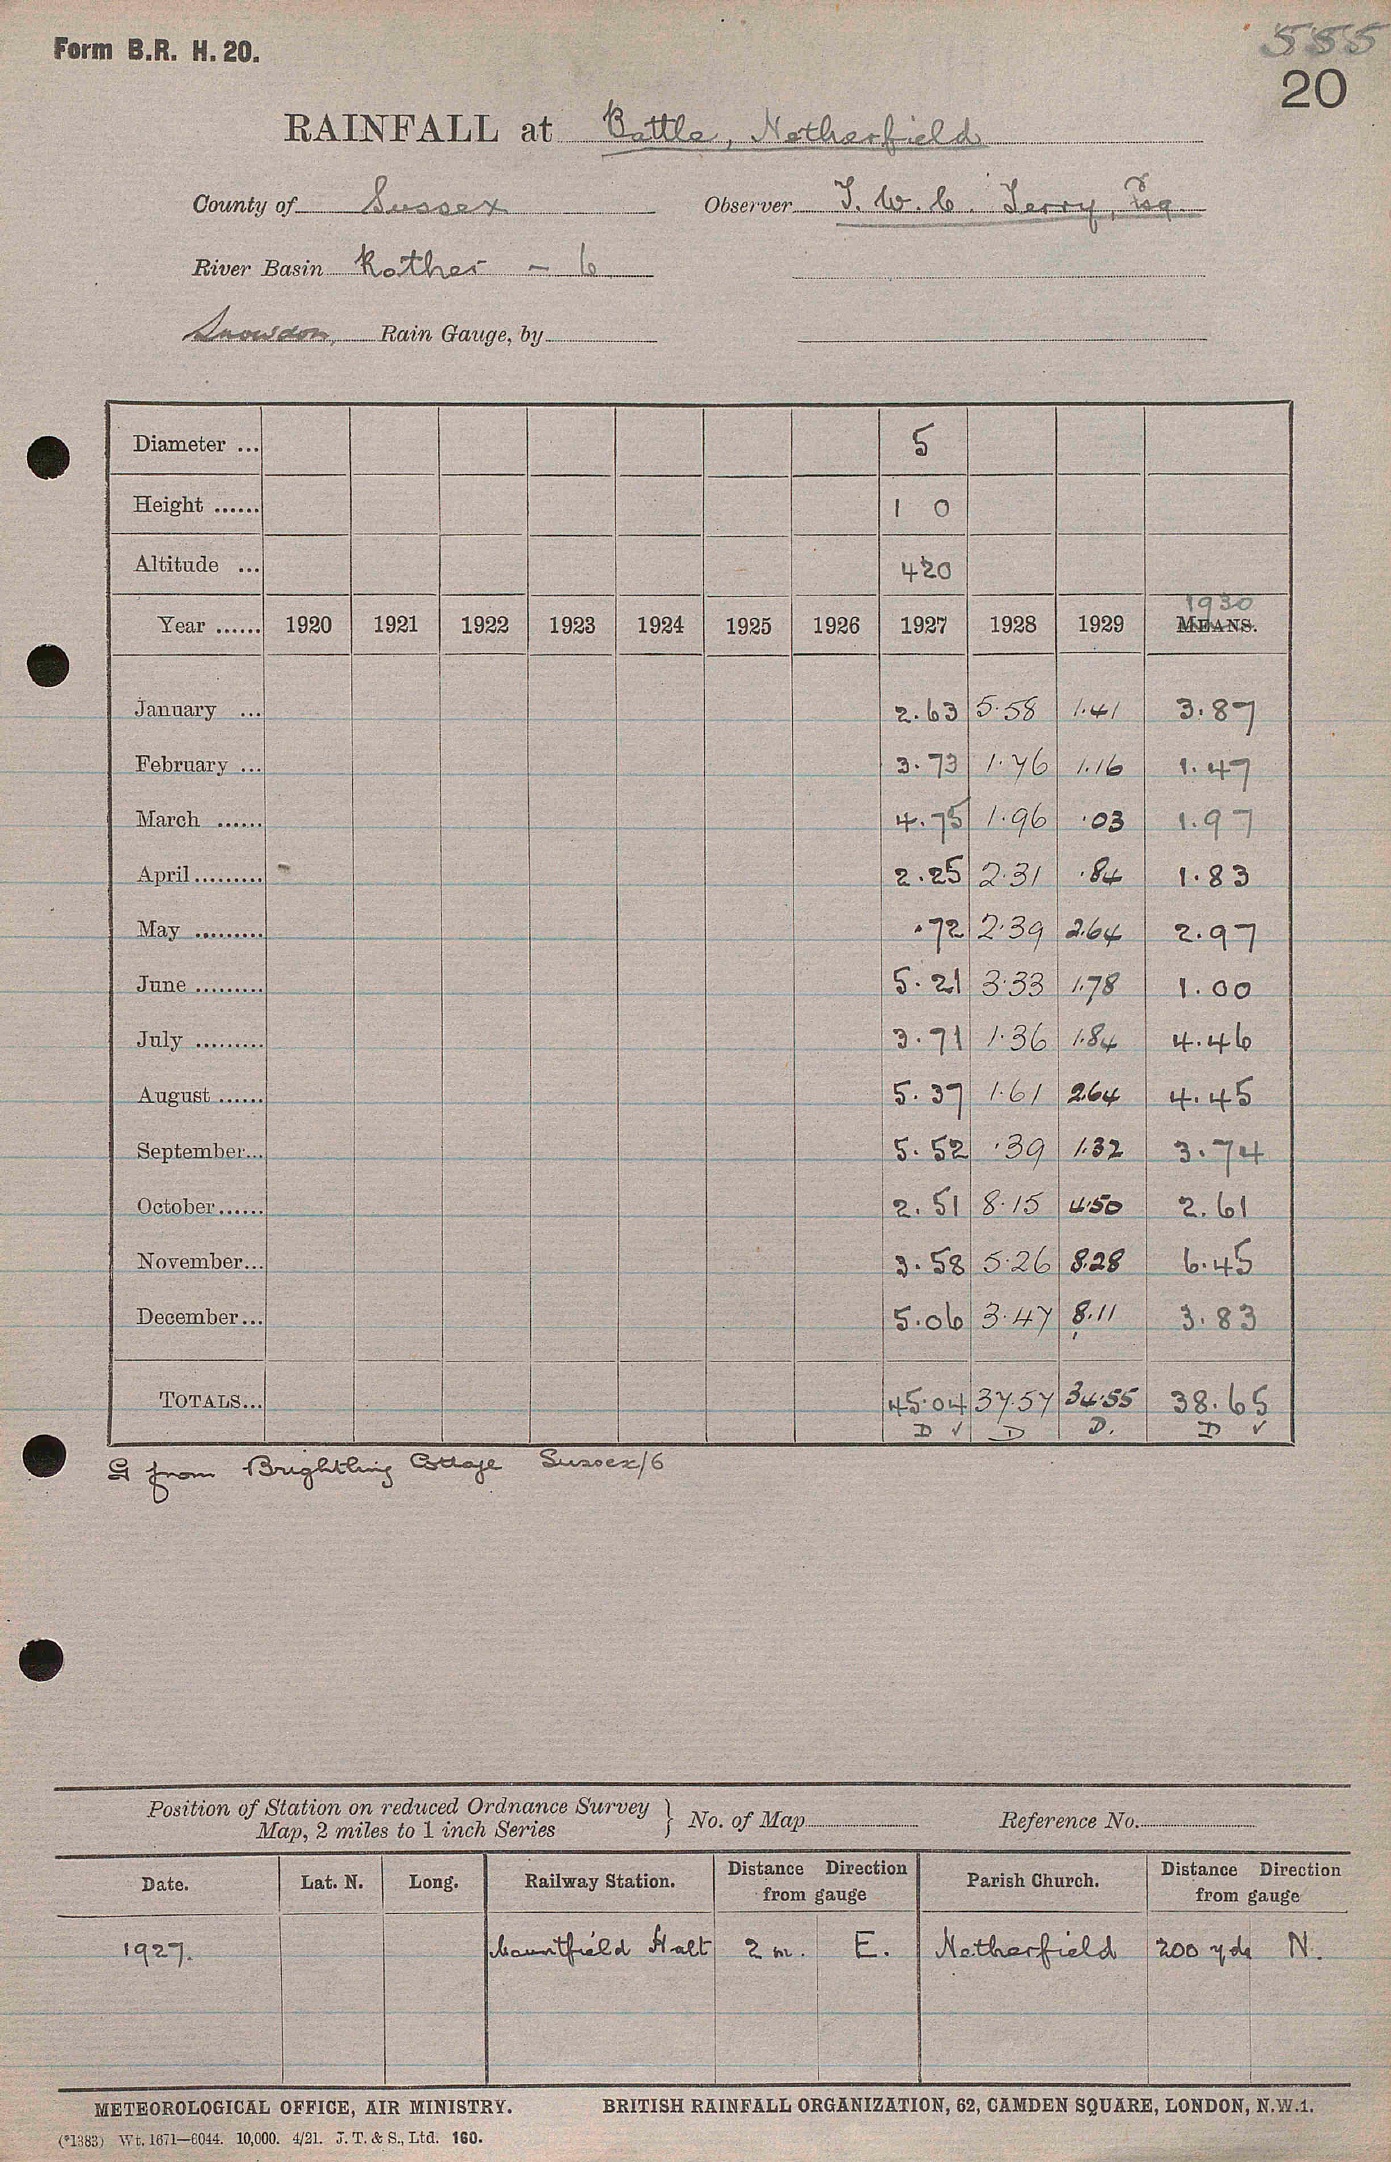 Form B.R. H. 20.
555
20
RAINFALL at Battle, Netherfield
County of Sussex Observer T. W. C. Terry, Esq.
River Basin Rother - 6
Snowdon, Rain Gauge, by
Diameter ... 5
Height ...... 1 0
Altitude ... 420
1930
Year ...... 1920 1921 1922 1923 1924 1925 1926 1927 1928 1929 MEANS.
January ... 2.63 5.58 1.41 3.87
February ... 3.73 1.76 1.16 1.47
March ...... 4.75 1.96 .03 1.97
April......... 2.25 2.31 .84 1.83
May ......... .72 2.39 2.64 2.97
June ......... 5.21 3.33 1.78 1.00
July ......... 3.71 1.36 1.84 4.46
August ...... 5.37 1.61 2.64 4.45
September... 5.52 .39 1.32 3.74
October...... 2.51 8.15 4.50 2.61
November... 3.58 5.26 8.28 6.45
December... 5.06 3.47 8.11 3.83
TOTALS... 45.04 37.57 34.55 38.65
D ✓ D D. D ✓
G from Brightling Cottage Sussex/6
Position of Station on reduced Ordnance Survey
Map, 2 miles to 1 inch Series } No. of Map Reference No.
Date. Lat. N. Long. Railway Station. Distance Direction from gauge Parish Church. Distance Direction from gauge
1927. Mountfield Halt 2 m. E. Netherfield 200 yds N.
METEOROLOGICAL OFFICE, AIR MINISTRY. BRITISH RAINFALL ORGANIZATION, 62, CAMDEN SQUARE, LONDON, N.W.1.
(*1383) Wt. 1671—6044. 10,000. 4/21. J. T. & S., Ltd. 160.